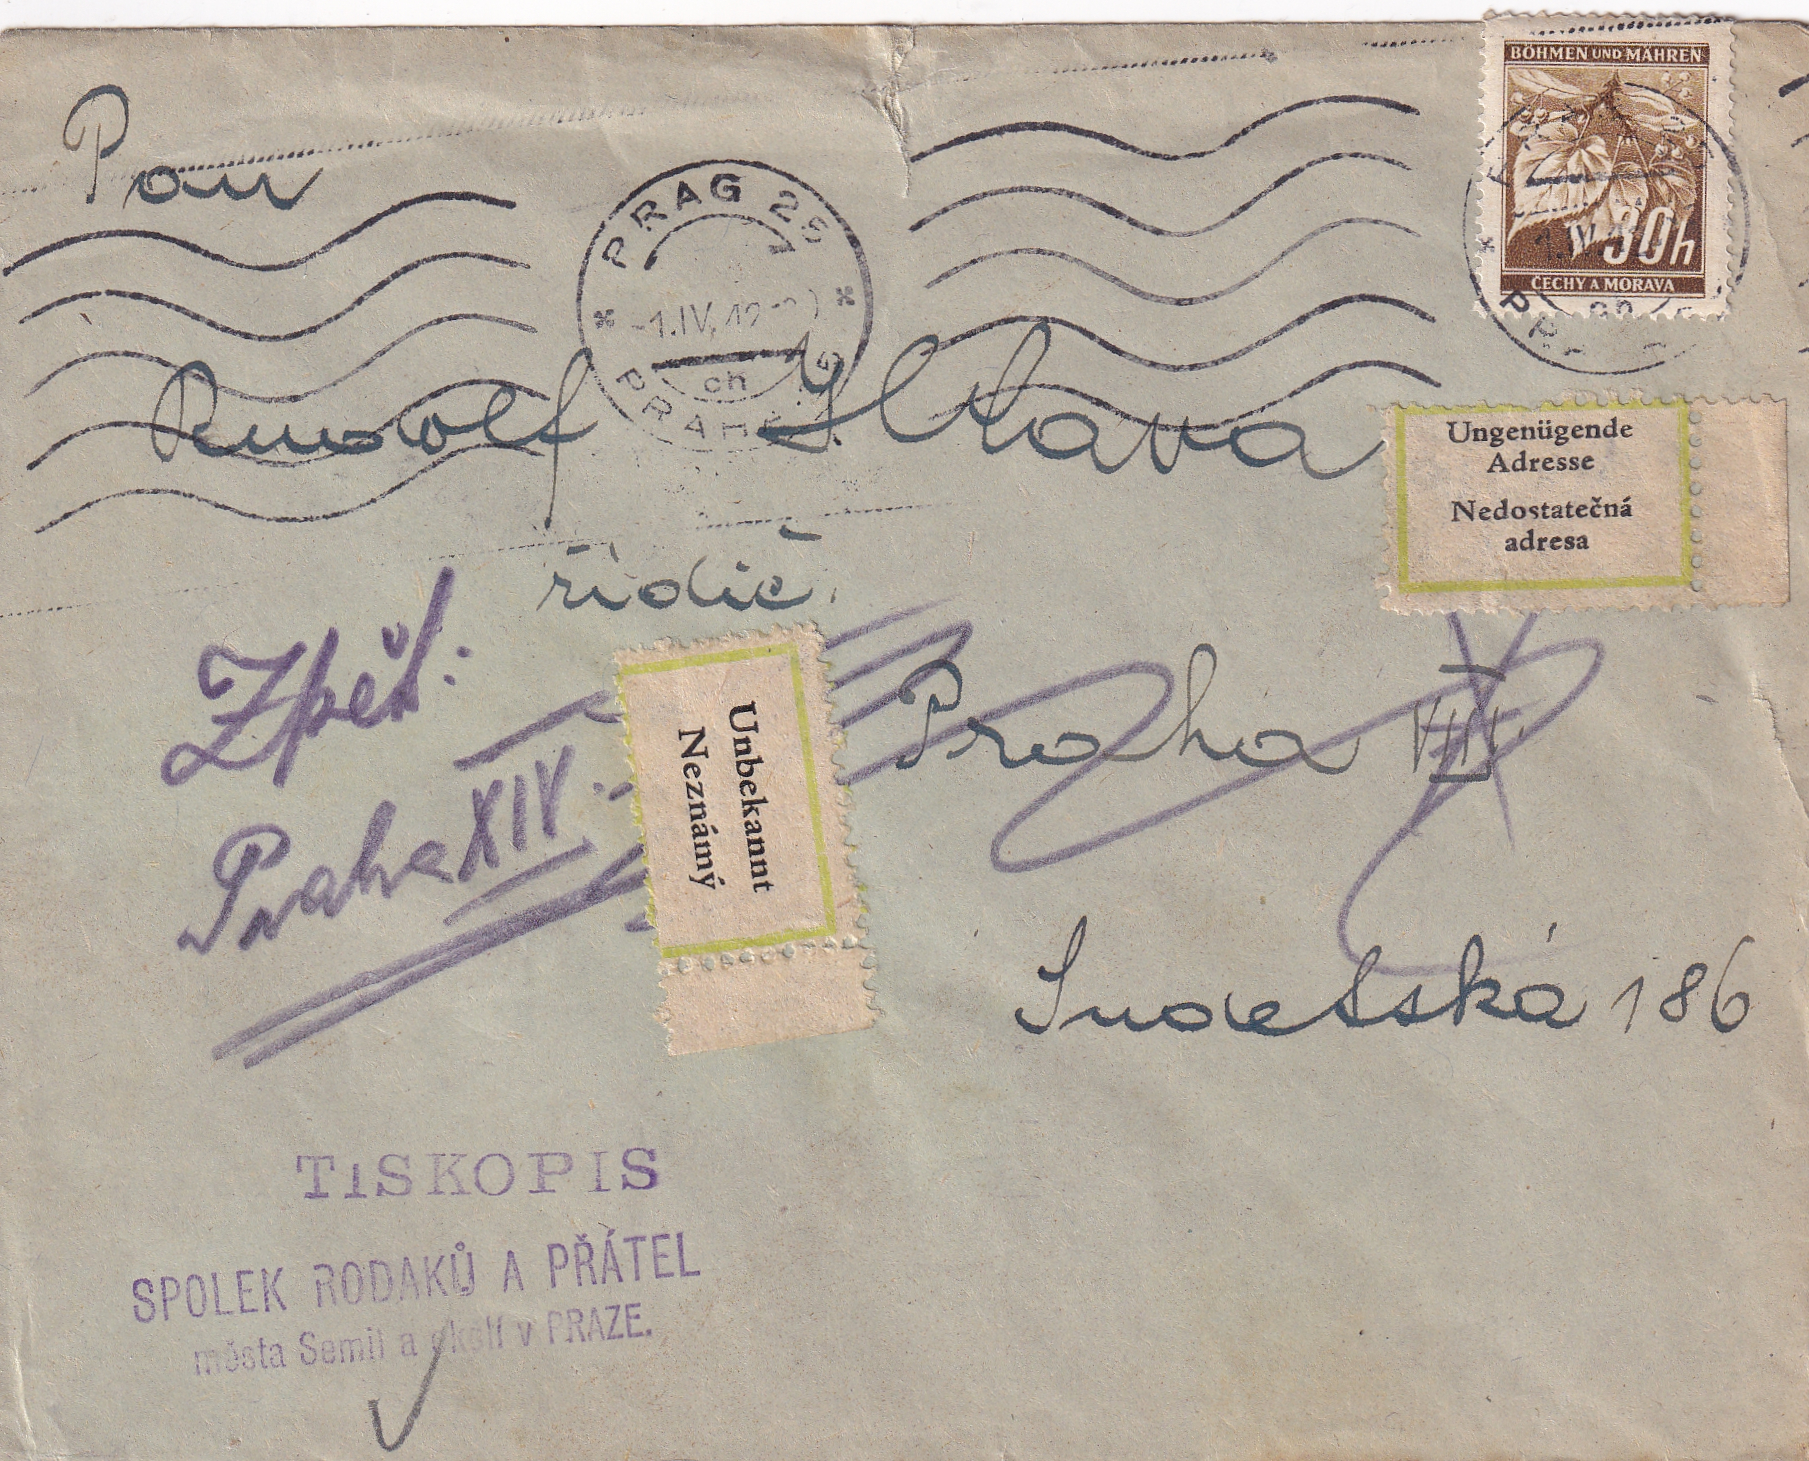 BÖHMEN UND MÄHREN
30h
ČECHY A MORAVA
Pan
PRAG 25
-1.IV.42
ch
PRAHA
Rudolf
řidič.
Ungenügende
Adresse
Nedostatečná
adresa
Zpět:
Praha XIV.
Unbekannt
Neznámý
Praha VIII.
Sudetská 186
TISKOPIS
SPOLEK RODAKŮ A PŘÁTEL
města Semil a okolí v PRAZE.